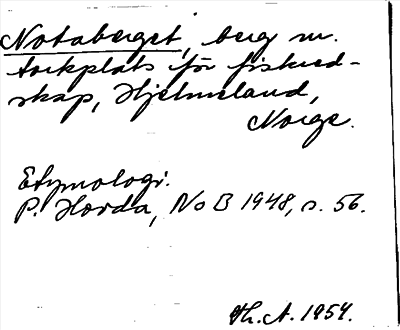 Notaberget, berg m.
torkplats för fiskred-
skap, Hjelmeland,
Norge.
Etymologi.
P. Hovda, NoB 1948, s. 56.
Th. A. 1954.